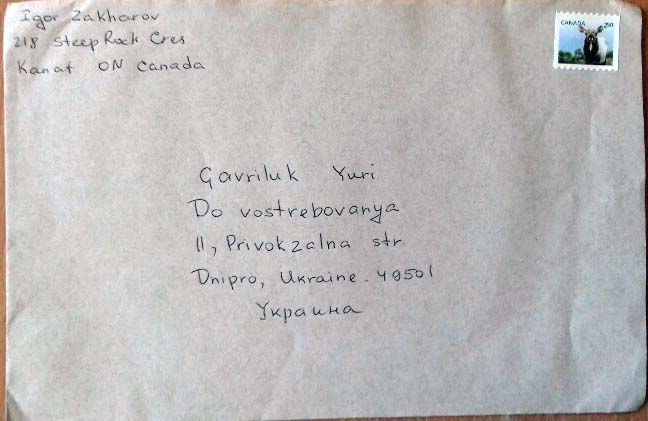 Igor Zakharov
218 Steep Rock Cres
Kanat ON Canada
CANADA 250
Gavriluk Yuri
Do vostrebovanya
11, Privokzalna str
Dnipro, Ukraine. 49501
Украина